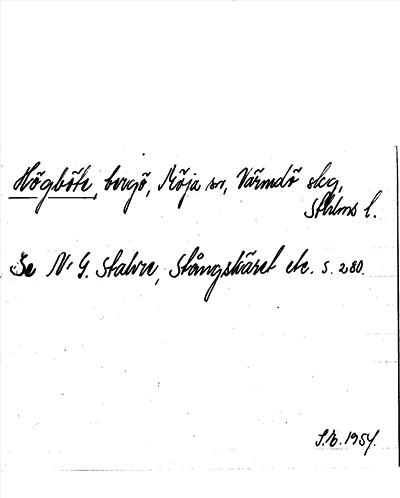 Högböte, bergö, Möja sn, Värmdö skg,
Sthlms l.
Se N. G. Stahre, Stångskäret etc. s. 280.
1954.